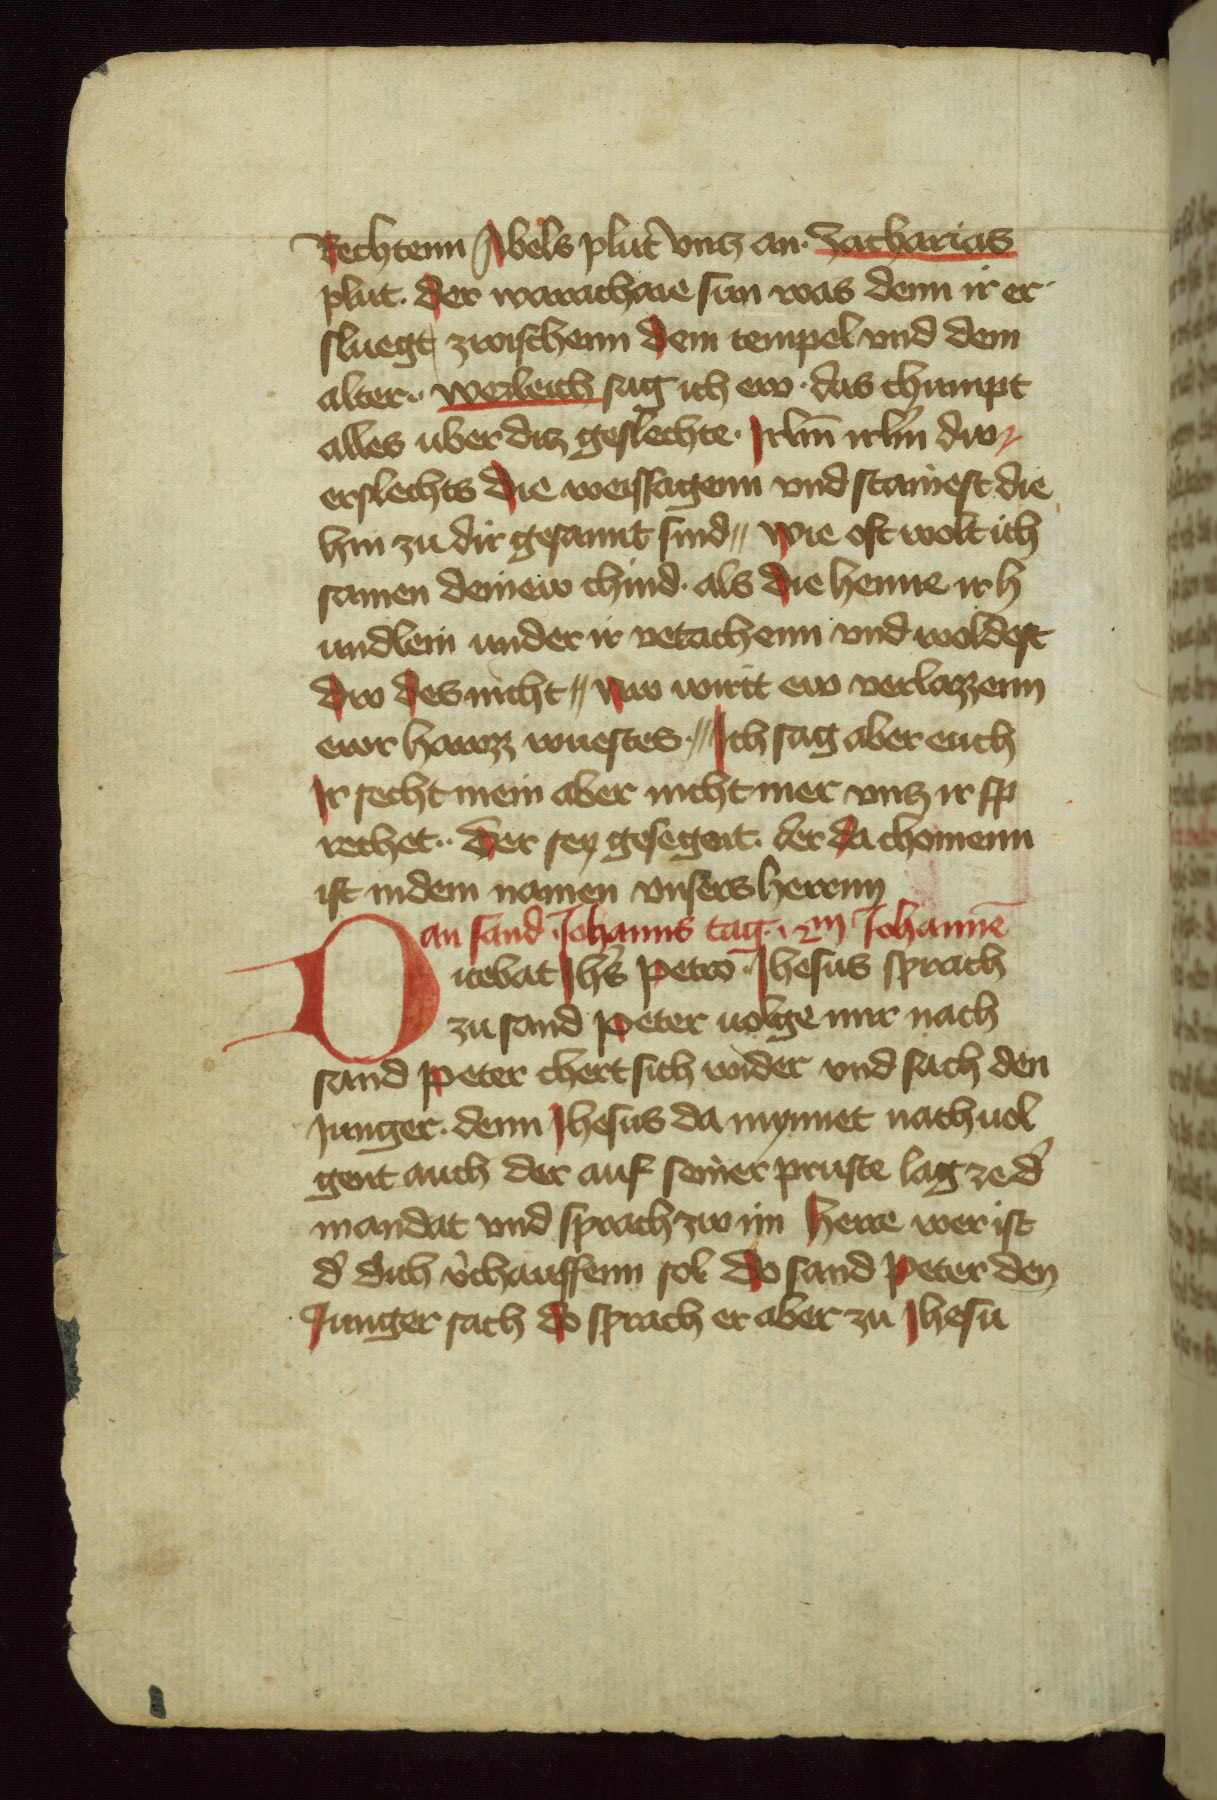 Rechtenn Abels plut vntz an. Zacharias
plut. der warachiae sun was denn ir er
sluegt zwischenn dem tempel vnd dem
alter.. werleich sag ich ew. das chumpt
alles uber ditz geslechte. Jrlm̄ irlm̄ dw
erslechts die weissagenn vnd stainest die
hin zu dir gesannt sind // wie oft wolt ich
samen deinew chind. als die henne ir h
undlein under ir vetachenn vnd woldest
dw des nicht // nw wirt ew verlazzenn
ewr hawzz wuestes. // Ich sag aber euch
Jr secht mein aber nicht mer vntz ir sp
rechet.. Der sey gesegent. der da chomenn
ist in dem namen vnsers herrnn
an sand Johanns tag. Johannē
Dicebat Jhs̄ petro. Jhesus sprach
zu sand Peter uolge mir nach
sand Peter chert sich wider vnd sach den
Junger. denn Jhesus da mynnet nach uol
gent auch der auf seiner pruste lag ze d̓
mandat vnd sprach zw im herre wer ist
d̓ dich v̓chauffenn sol Do sand Peter den
Junger sach do sprach er aber zu Jhesu